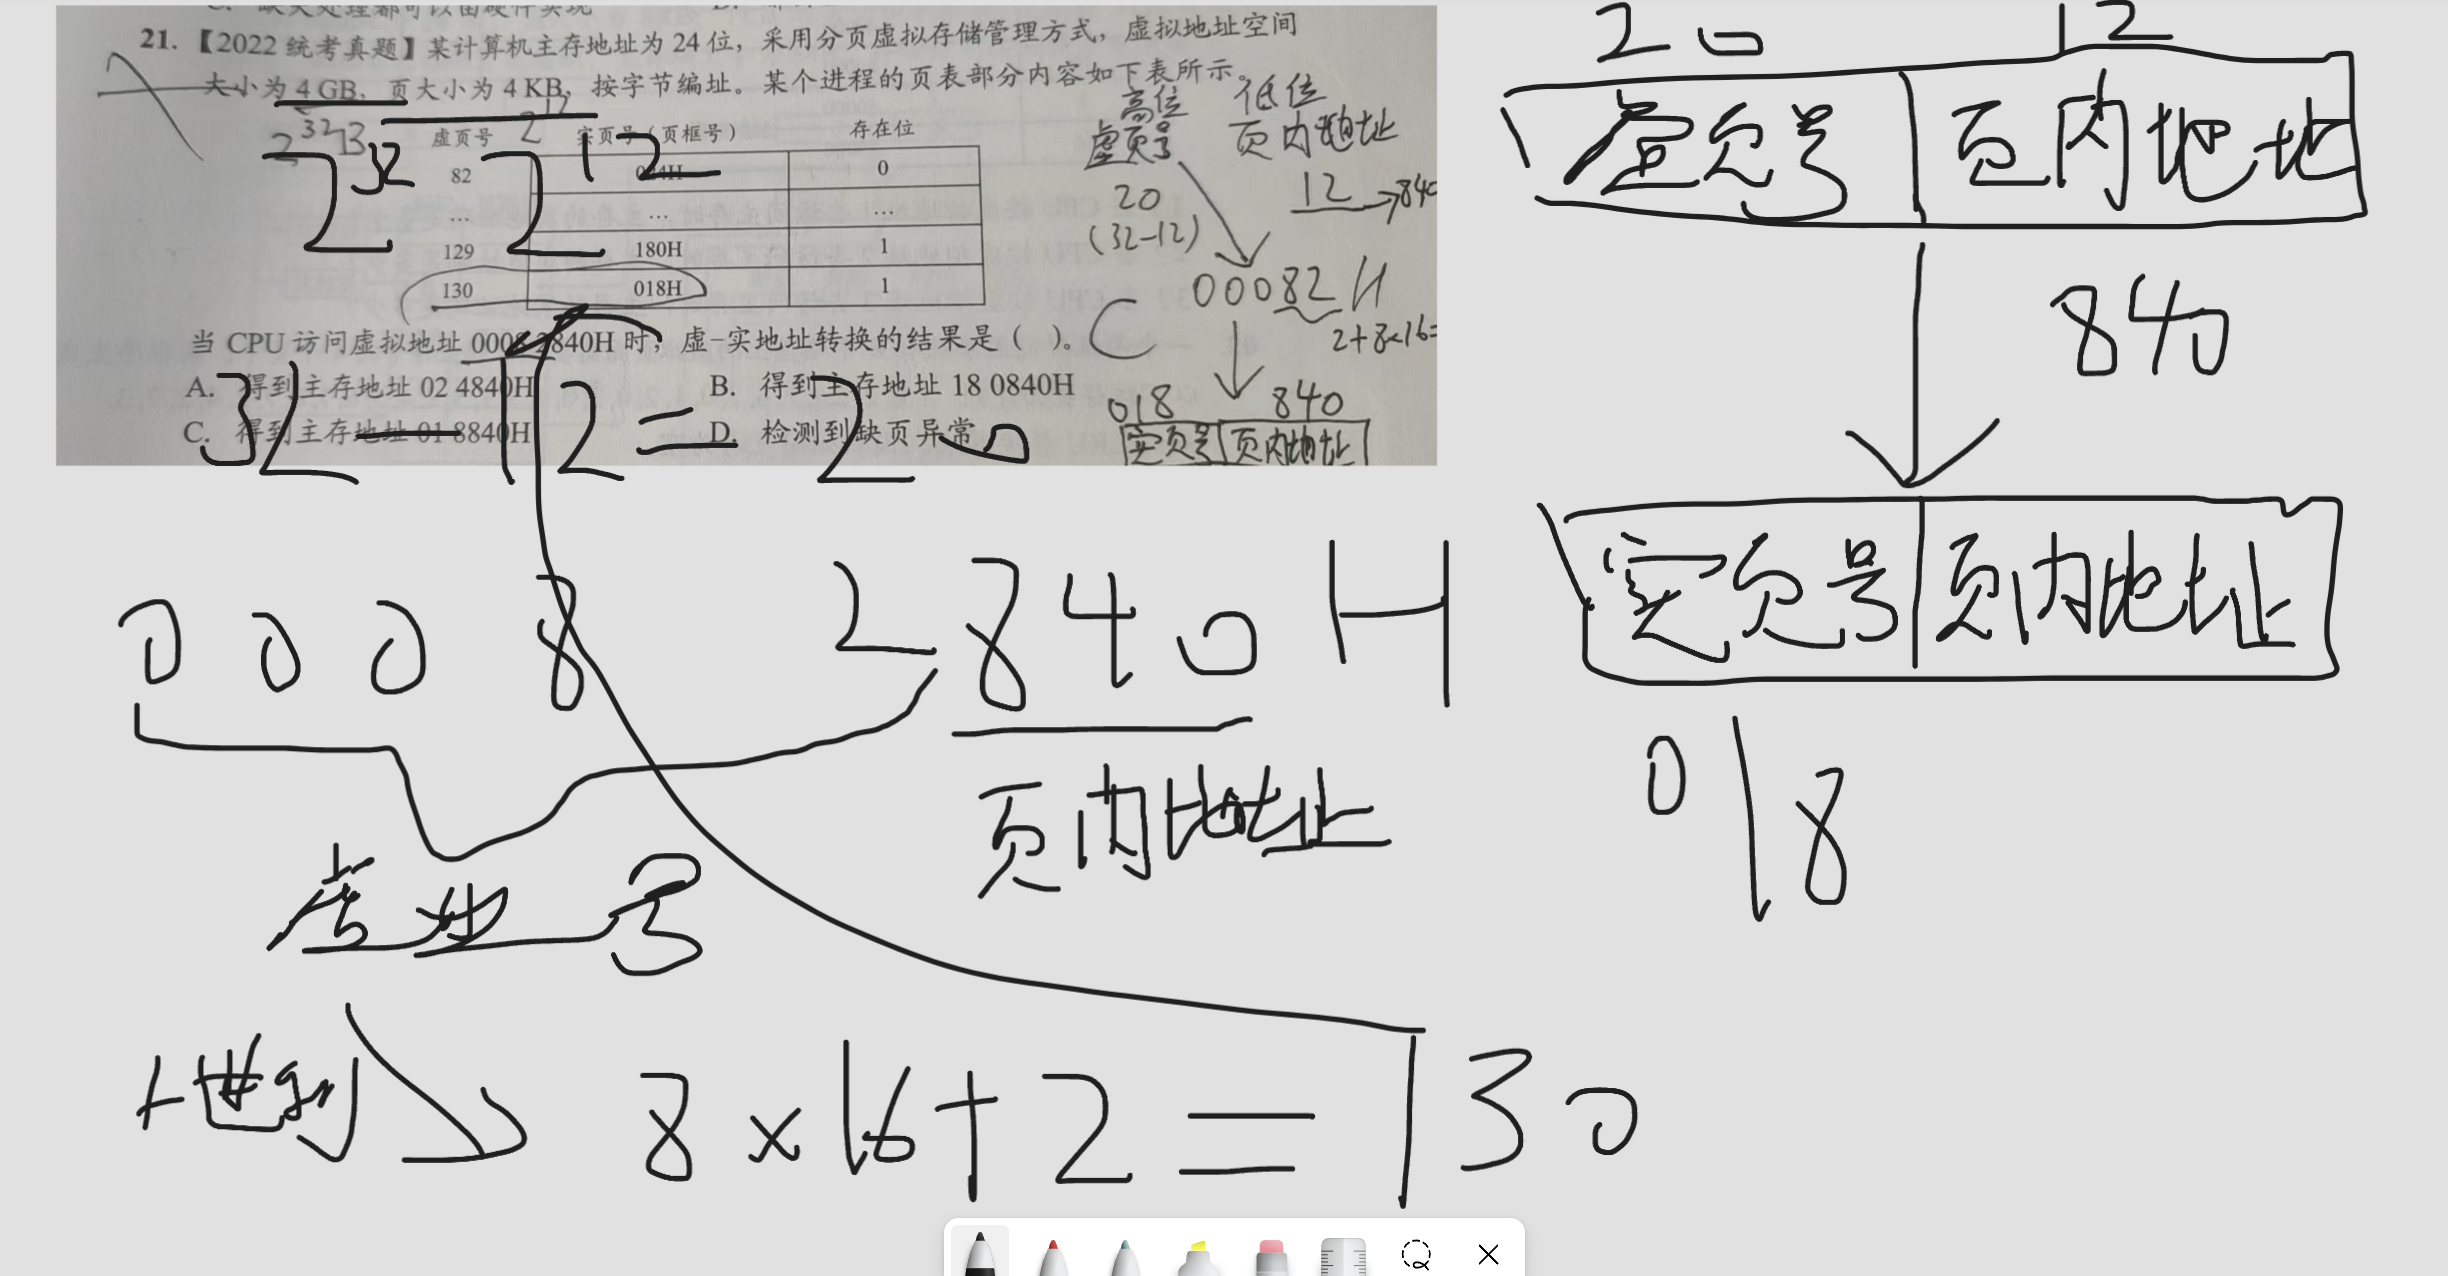 21.【2022 统考真题】某计算机主存地址为 24 位，采用分页虚拟存储管理方式，虚拟地址空间
大小为 4 GB，页大小为 4 KB，按字节编址。某个进程的页表部分内容如下表所示。
虚页号 实页号（页框号） 存在位
82 024H 0
… … …
129 180H 1
130 018H 1
当 CPU 访问虚拟地址 0008 2840H 时，虚-实地址转换的结果是（ ）。
A. 得到主存地址 02 4840H B. 得到主存地址 18 0840H
C. 得到主存地址 01 8840H D. 检测到缺页异常
2^32 2^12
高位 低位
虚页号 页内地址
20 12 → 840
(32-12)
00082 H
C
2+8×16=
018 840
实页号 页内地址
2^32 2^12
32-12=20
20 12
虚页号 页内地址
840
实页号 页内地址
018
0008 2840H
页内地址
号
8×16+2=130